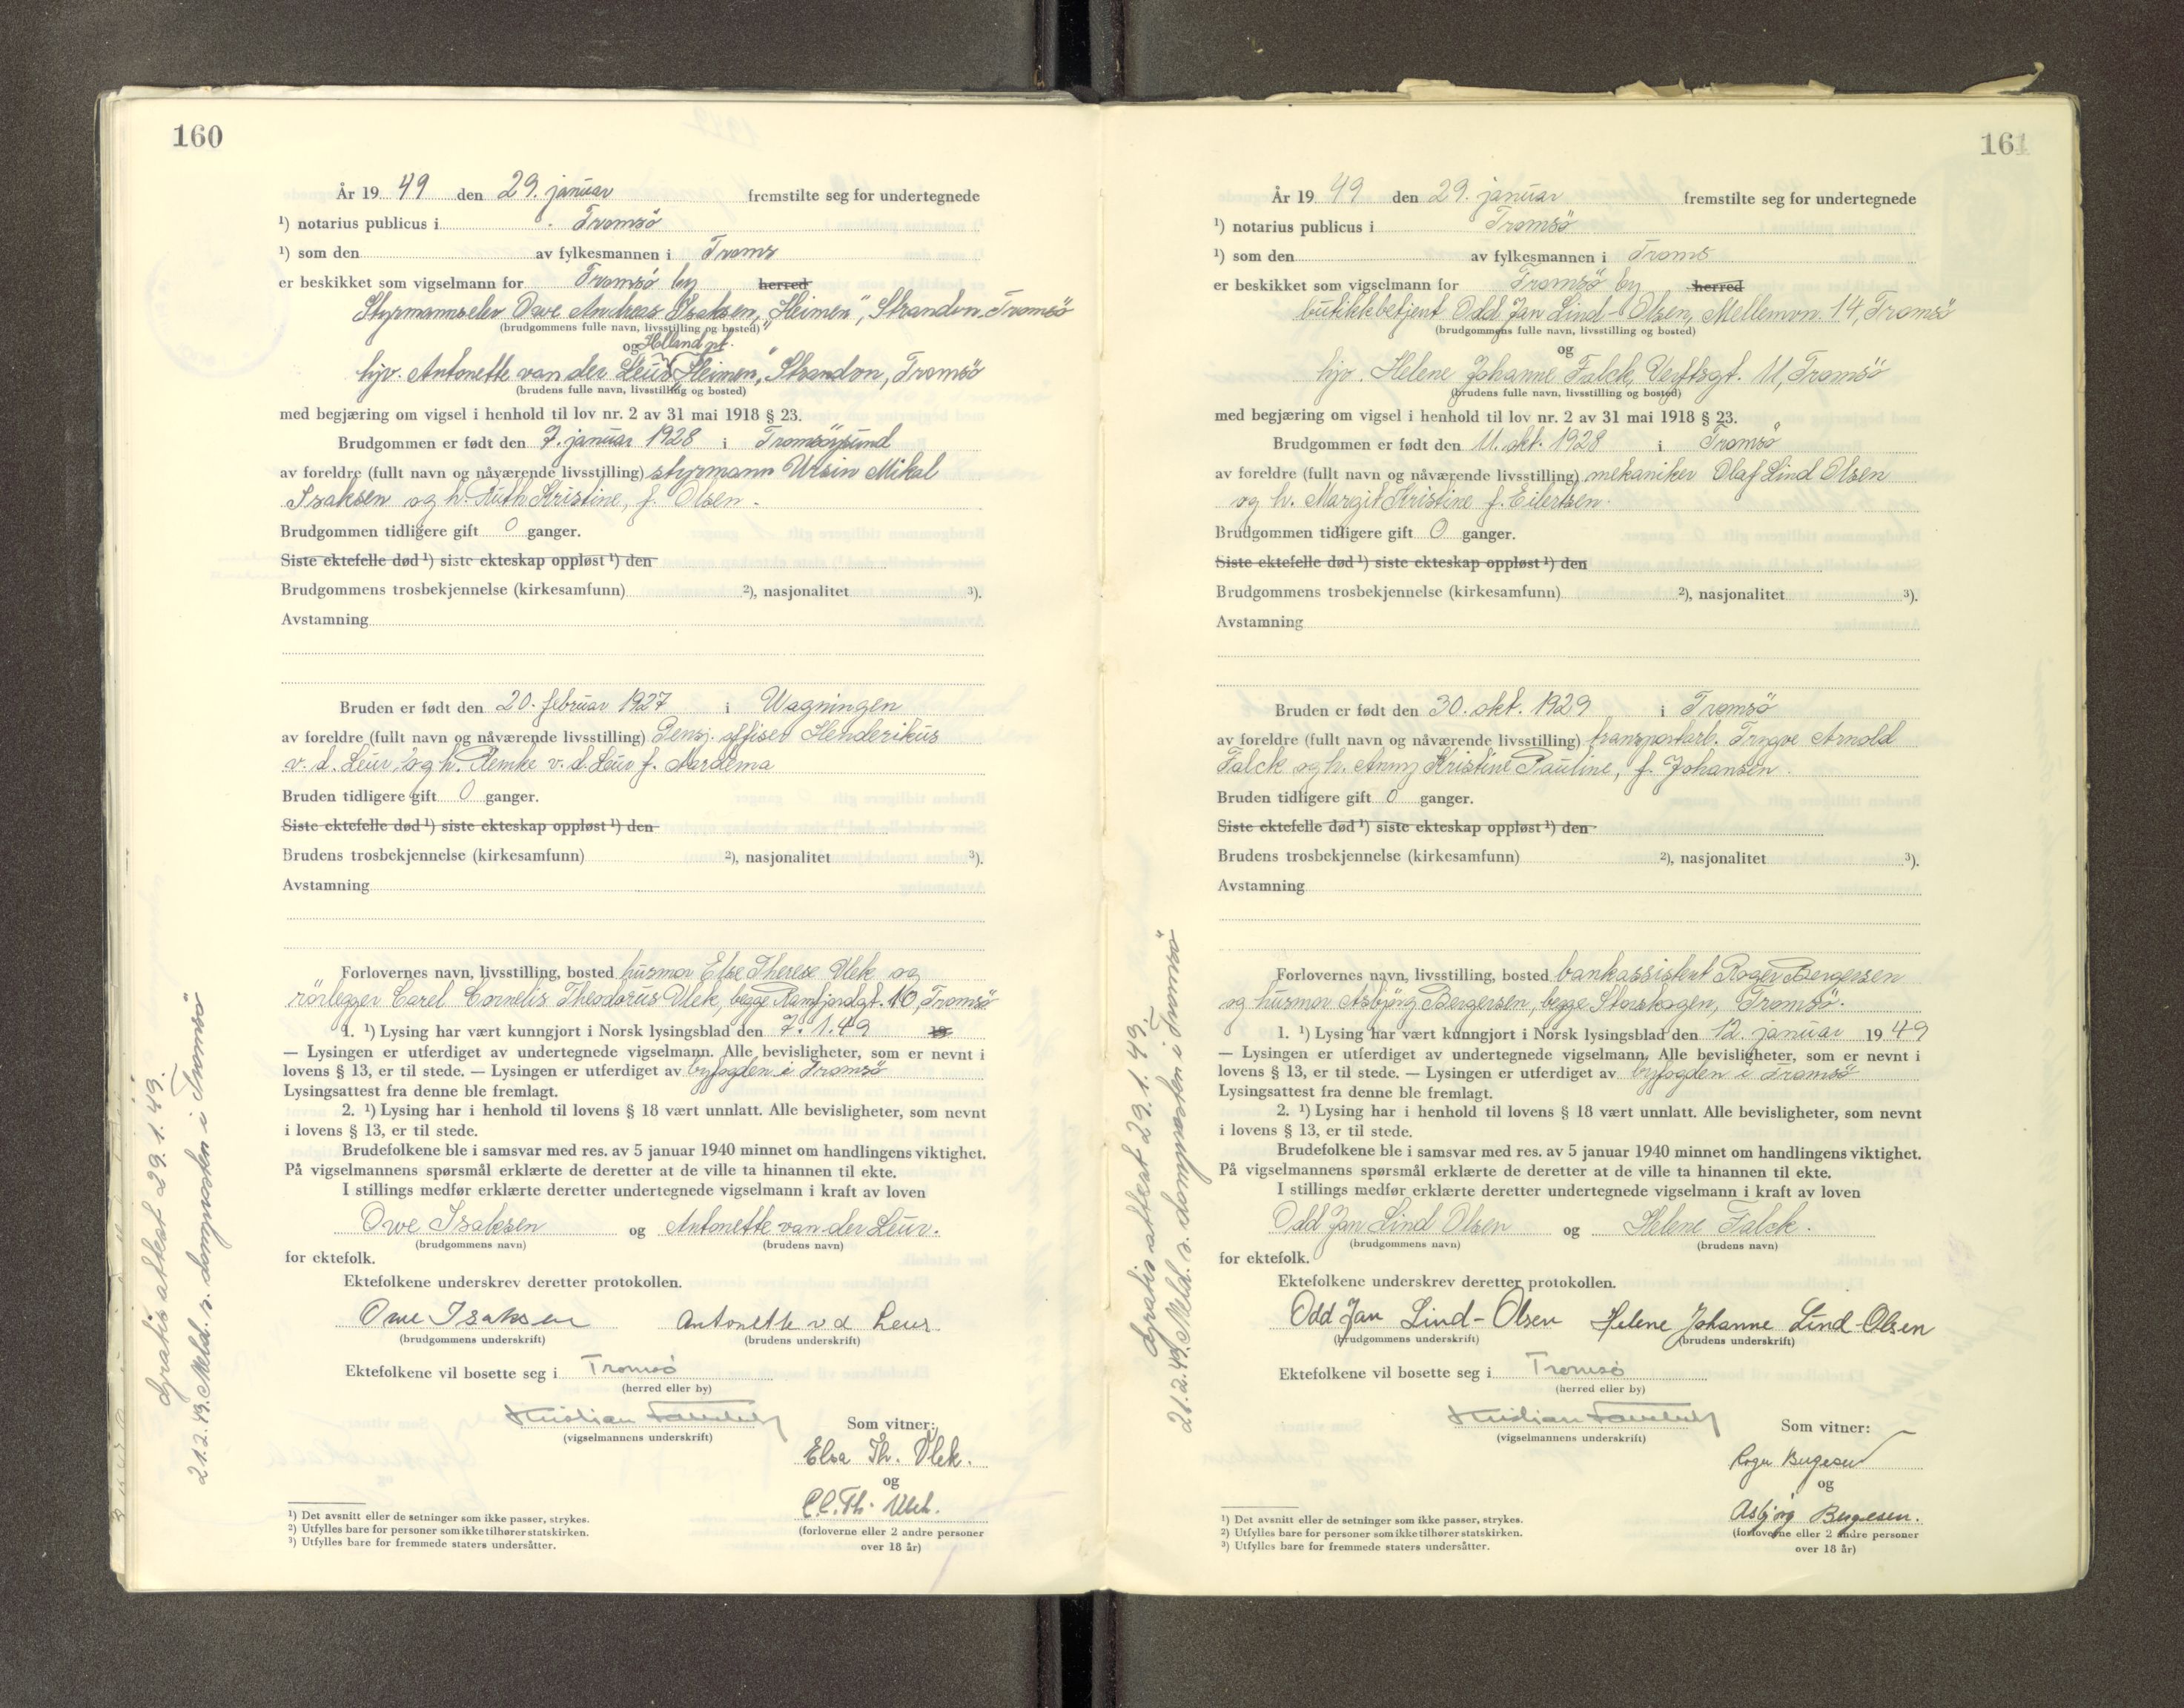 160
År 19 49 den 29. januar fremstilte seg for undertegnede
¹) notarius publicus i Tromsö
¹) som den av fylkesmannen i Troms
er beskikket som vigselmann for Tromsö by herred
Styrmannselev Owe Andreas Isaksen, "Heimen", Strandvn. Tromsö
(brudgommens fulle navn, livsstilling og bosted)
og Holland pt.
hjv. Antonette van der Leur "Heimen", Strandvn, Tromsö
(brudens fulle navn, livsstilling og bosted)
med begjæring om vigsel i henhold til lov nr. 2 av 31 mai 1918 § 23.
Brudgommen er født den 7. januar 1928 i Tromsöysund
av foreldre (fullt navn og nåværende livsstilling) styrmann Ursin Mikal
Isaksen og h. Ruth Kristine, f. Olsen.
Brudgommen tidligere gift 0 ganger.
Siste ektefelle død ¹) siste ekteskap oppløst ¹) den
Brudgommens trosbekjennelse (kirkesamfunn) ²), nasjonalitet ³).
Avstamning
Bruden er født den 20. februar 1927 i Wagningen
av foreldre (fullt navn og nåværende livsstilling) Pensj. offiser Henderikus
v. d. Leur, og h. Remke v. d. Leur f. Aardema
Bruden tidligere gift 0 ganger.
Siste ektefelle død ¹) siste ekteskap oppløst ¹) den
Brudens trosbekjennelse (kirkesamfunn) ²), nasjonalitet ³).
Avstamning
Forlovernes navn, livsstilling, bosted husmor Else Therese Vlek og
rörlegger Carel Cornelis Theodorus Vlek, begge Ramfjordgt. 10, Tromsö
1. ¹) Lysing har vært kunngjort i Norsk lysingsblad den 7. 1. 49 19
— Lysingen er utferdiget av undertegnede vigselmann. Alle bevisligheter, som er nevnt i
lovens § 13, er til stede. — Lysingen er utferdiget av byfogden i Tromsö
Lysingsattest fra denne ble fremlagt.
2. ¹) Lysing har i henhold til lovens § 18 vært unnlatt. Alle bevisligheter, som nevnt
i lovens § 13, er til stede.
Brudefolkene ble i samsvar med res. av 5 januar 1940 minnet om handlingens viktighet.
På vigselmannens spørsmål erklærte de deretter at de ville ta hinannen til ekte.
I stillings medfør erklærte deretter undertegnede vigselmann i kraft av loven
Owe Isaksen og Antonette van der Leur.
(brudgommens navn) (brudens navn)
for ektefolk.
Ektefolkene underskrev deretter protokollen.
Owe Isaksen Antonette v d Leur
(brudgommens underskrift) (brudens underskrift)
Ektefolkene vil bosette seg i Tromsö
(herred eller by)
Kristian
(vigselmannens underskrift)
Som vitner:
Elsa Th. Vlek.
og
C.C.Th. Vlek.
(forloverne eller 2 andre personer
over 18 år)
¹) Det avsnitt eller de setninger som ikke passer, strykes.
²) Utfylles bare for personer som ikke tilhører statskirken.
³) Utfylles bare for fremmede staters undersåtter.
Gratis attest 29. 1. 49.
21.2.49. Meld. s. domprosten i Tromsö
161
År 19 49 den 29. januar fremstilte seg for undertegnede
¹) notarius publicus i Tromsö
¹) som den av fylkesmannen i Troms
er beskikket som vigselmann for Tromsö by herred
butikkbetjent Odd Jan Lind-Olsen, Mellemvn. 14, Tromsö
(brudgommens fulle navn, livsstilling og bosted)
og
hjv. Helene Johanne Falck, Verftsgt. 11, Tromsö
(brudens fulle navn, livsstilling og bosted)
med begjæring om vigsel i henhold til lov nr. 2 av 31 mai 1918 § 23.
Brudgommen er født den 11. okt. 1928 i Tromsö
av foreldre (fullt navn og nåværende livsstilling) mekaniker Olaf Lind Olsen
og h. Margit Kristine f. Eilertsen.
Brudgommen tidligere gift 0 ganger.
Siste ektefelle død ¹) siste ekteskap oppløst ¹) den
Brudgommens trosbekjennelse (kirkesamfunn) ²), nasjonalitet ³).
Avstamning
Bruden er født den 30. okt. 1929 i Tromsö
av foreldre (fullt navn og nåværende livsstilling) transportarb. Trygve Arnold
Falck og h. Anny Kristine Pauline, f. Johansen.
Bruden tidligere gift 0 ganger.
Siste ektefelle død ¹) siste ekteskap oppløst ¹) den
Brudens trosbekjennelse (kirkesamfunn) ²), nasjonalitet ³).
Avstamning
Forlovernes navn, livsstilling, bosted bankassistent Roger Bergersen
og husmor Asbjörg Bergersen, begge Storskogen, Tromsö.
1. ¹) Lysing har vært kunngjort i Norsk lysingsblad den 12. januar 19 49
— Lysingen er utferdiget av undertegnede vigselmann. Alle bevisligheter, som er nevnt i
lovens § 13, er til stede. — Lysingen er utferdiget av byfogden i Tromsö
Lysingsattest fra denne ble fremlagt.
2. ¹) Lysing har i henhold til lovens § 18 vært unnlatt. Alle bevisligheter, som nevnt
i lovens § 13, er til stede.
Brudefolkene ble i samsvar med res. av 5 januar 1940 minnet om handlingens viktighet.
På vigselmannens spørsmål erklærte de deretter at de ville ta hinannen til ekte.
I stillings medfør erklærte deretter undertegnede vigselmann i kraft av loven
Odd Jan Lind Olsen og Helene Falck.
(brudgommens navn) (brudens navn)
for ektefolk.
Ektefolkene underskrev deretter protokollen.
Odd Jan Lind-Olsen Helene Johanne Lind-Olsen
(brudgommens underskrift) (brudens underskrift)
Ektefolkene vil bosette seg i Tromsö
(herred eller by)
Kristian
(vigselmannens underskrift)
Som vitner:
Roger Bergesen
og
Asbjørg Bergesen.
(forloverne eller 2 andre personer
over 18 år)
¹) Det avsnitt eller de setninger som ikke passer, strykes.
²) Utfylles bare for personer som ikke tilhører statskirken.
³) Utfylles bare for fremmede staters undersåtter.
Gratis attest 29. 1. 49.
21.2.49. Meld. s. domprosten i Tromsö